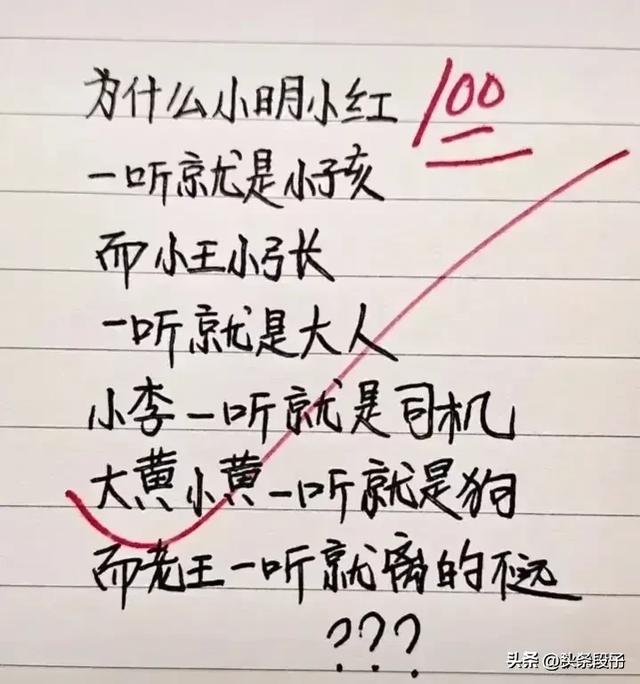 为什么小明小红
100
一听就是小孩
而小王小张
一听就是大人
小李一听就是司机
大黄小黄一听就是狗
而老王一听就离的不远
???
头条 @头条段子